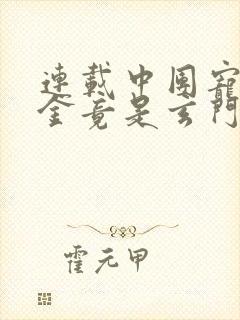 連載中團寵
金竟是玄門
霍元甲